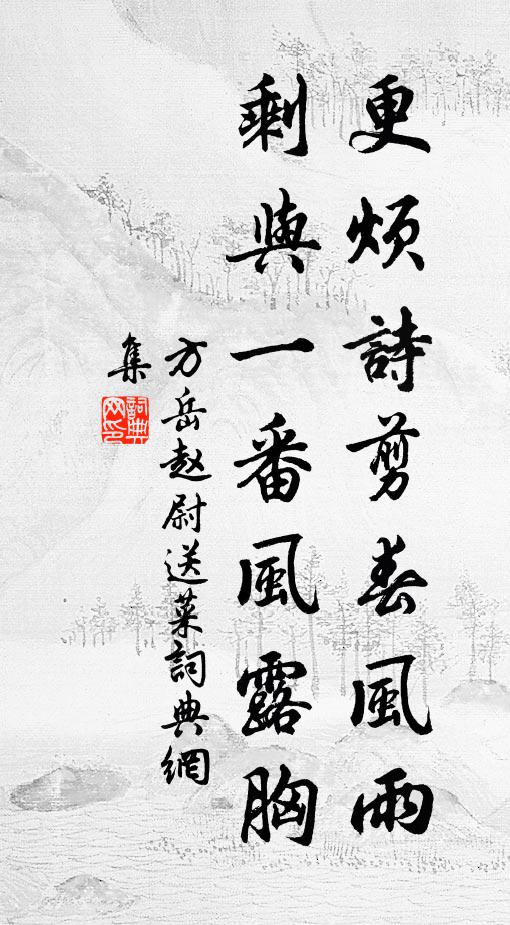 更煩詩剪春風雨
剩與一番風露胸
方岳赵尉送菜詞典網
集
詞典网印